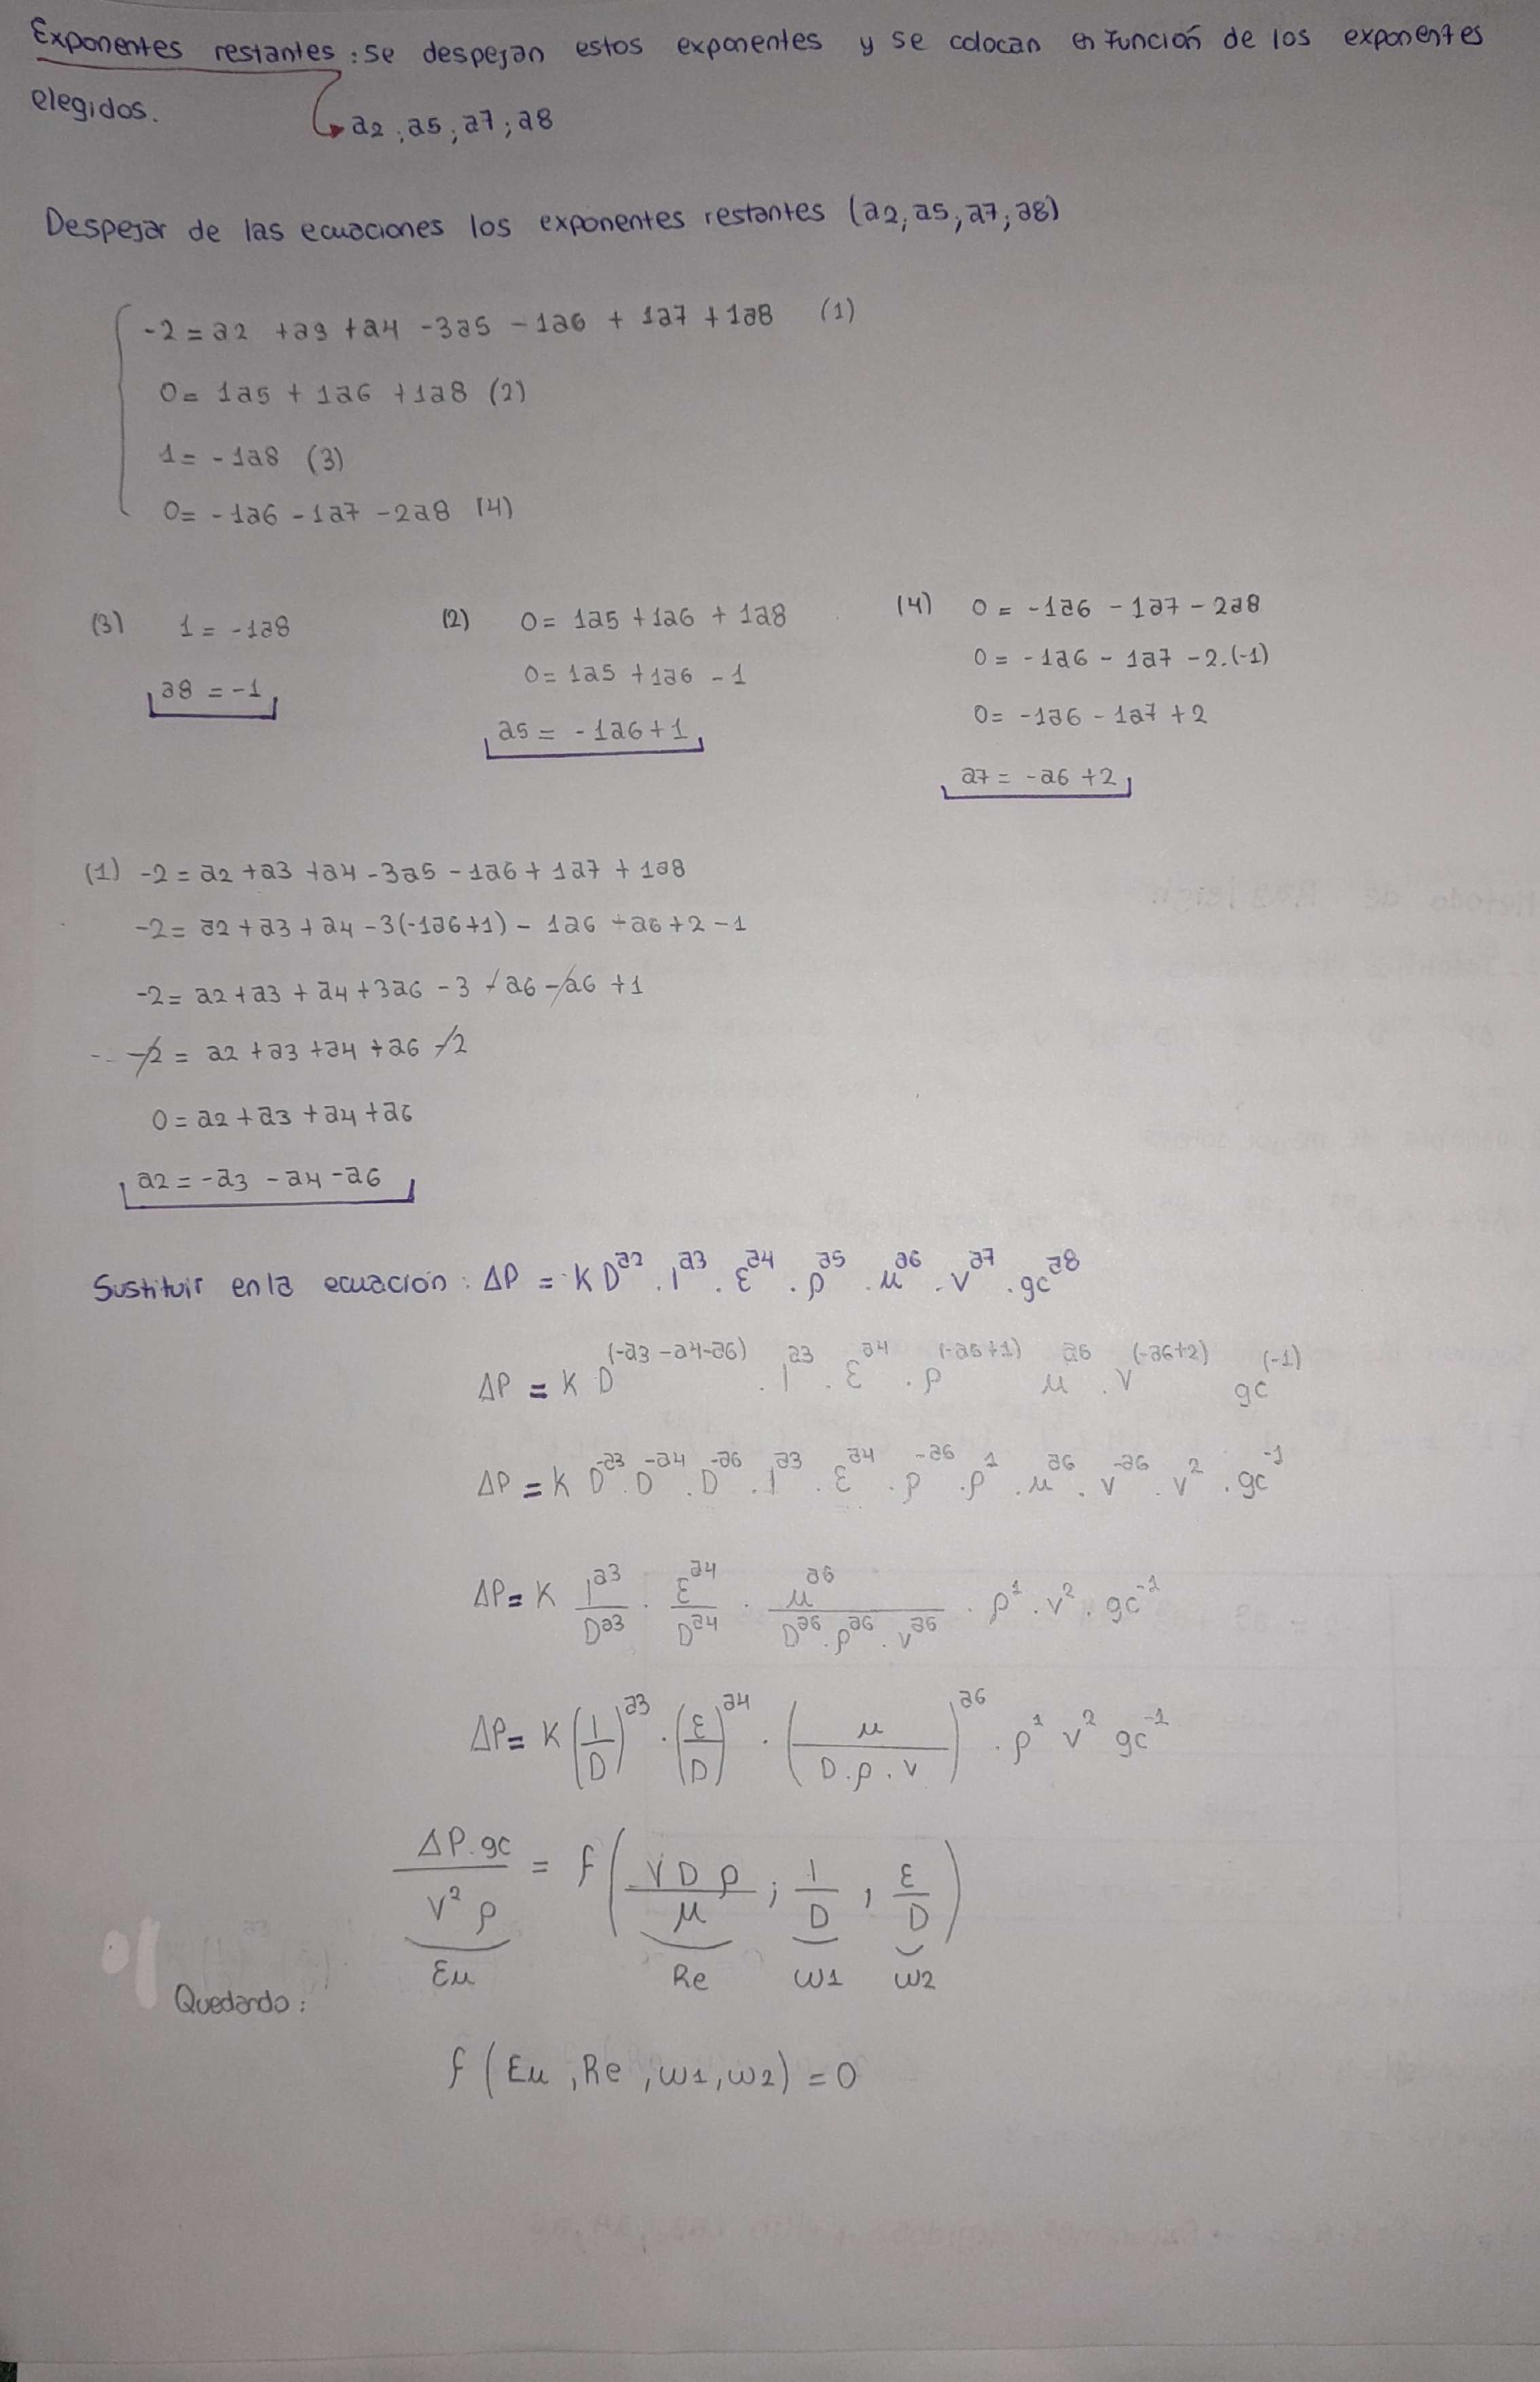 Exponentes restantes: se despejan estos exponentes y se colocan en función de los exponentes
elegidos.
a2, a5, a7; a8
Despejar de las ecuaciones los exponentes restantes (a2, a5, a7, a8)
-2 = a2 + a3 + a4 - 3a5 - 1a6 + 1a7 + 1a8 (1)
0 = 1a5 + 1a6 + 1a8 (2)
1 = -1a8 (3)
0 = -1a6 - 1a7 - 2a8 (4)
(3) 1 = -1a8
a8 = -1
(2) 0 = 1a5 + 1a6 + 1a8
0 = 1a5 + 1a6 - 1
a5 = -1a6 + 1
(4) 0 = -1a6 - 1a7 - 2a8
0 = -1a6 - 1a7 - 2.(-1)
0 = -1a6 - 1a7 + 2
a7 = -a6 + 2
(1) -2 = a2 + a3 + a4 - 3a5 - 1a6 + 1a7 + 1a8
-2 = a2 + a3 + a4 - 3(-1a6+1) - 1a6 - a6 + 2 - 1
-2 = a2 + a3 + a4 + 3a6 - 3 - a6 - a6 + 1
-2 = a2 + a3 + a4 + a6 - 2
0 = a2 + a3 + a4 + a6
a2 = -a3 - a4 - a6
Sustituir en la ecuación: ΔP = K D^a2 . l^a3 . ε^a4 . ρ^a5 . μ^a6 . v^a7 . gc^a8
ΔP = K D^(-a3-a4-a6) . l^a3 . ε^a4 . ρ^(-a6+1) μ^a6 . v^(-a6+2) gc^(-1)
ΔP = K D^-a3 . D^-a4 . D^-a6 . l^a3 . ε^a4 . ρ^-a6 . ρ^1 . μ^a6 . v^-a6 . v^2 . gc^-1
ΔP = K l^a3/D^a3 . ε^a4/D^a4 . μ^a6/(D^a6 . ρ^a6 . v^a6) . ρ^1 . v^2 . gc^-1
ΔP = K (l/D)^a3 . (ε/D)^a4 . (μ/(D.ρ.v))^a6 . ρ^1 v^2 gc^-1
ΔP.gc/(v^2 ρ) = f(v D ρ/μ ; l/D , ε/D)
Eu Re ω1 ω2
Quedando:
f(Eu, Re, ω1, ω2) = 0